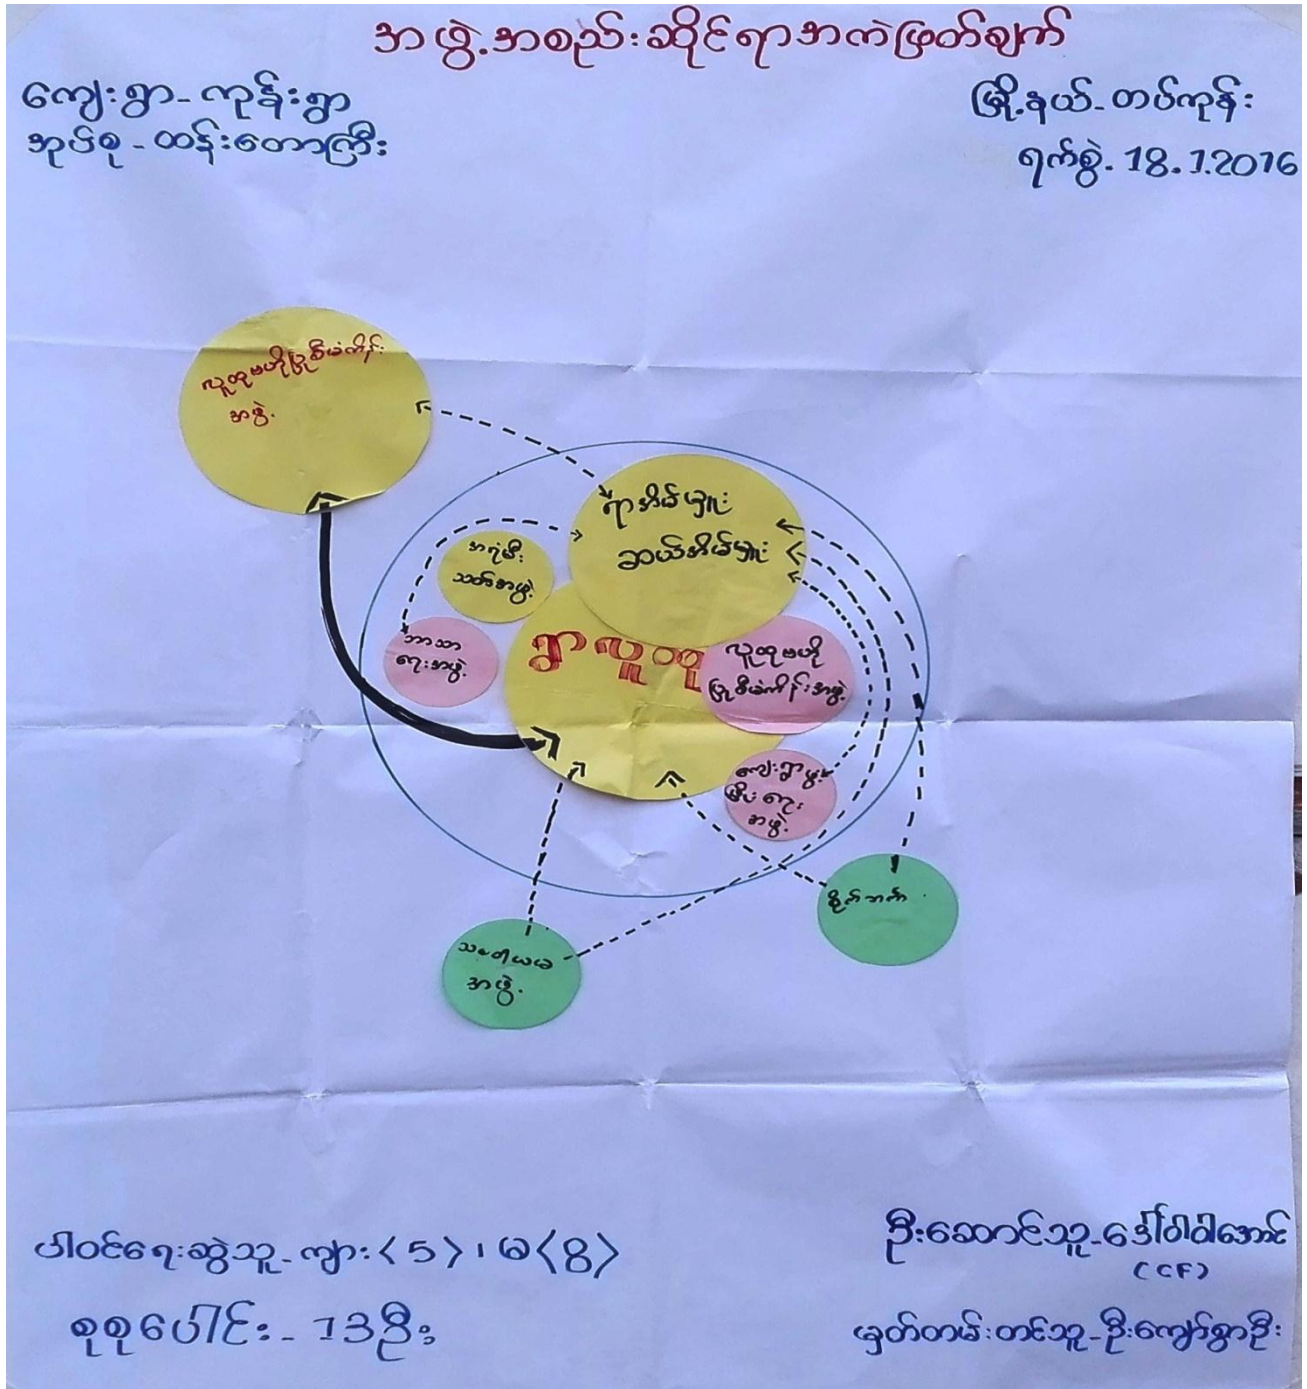 အဖွဲ့အစည်းဆိုင်ရာအကဲဖြတ်ချက်
ကျေးရွာ-ကုန်းရွာ
အုပ်စု-ထန်းတောကြီး
မြို့နယ်-တပ်ကုန်း
ရက်စွဲ. 18.7.2016
လူထုဗဟိုပြုစီမံကိန်း
အဖွဲ့
ရာအိမ်မှူး
ဆယ်အိမ်မှူး
အရံမီး
သတ်အဖွဲ့
ဘာသာ
ရေးအဖွဲ့
ရွာလူထု
လူထုဗဟို
ပြုစီမံကိန်းအဖွဲ့
ကျေးရွာဖွံ့
ဖြိုးရေး
အဖွဲ့
စိုက်ဘဏ်
သမဝါယမ
အဖွဲ့
ပါဝင်ရေးဆွဲသူ-ကျား<5>၊ မ<8>
စုစုပေါင်း-13ဦး
ဦးဆောင်သူ-ဒေါ်ဝါဝါအောင်
(CF)
မှတ်တမ်းတင်သူ-ဦးကျော်စွာဦး